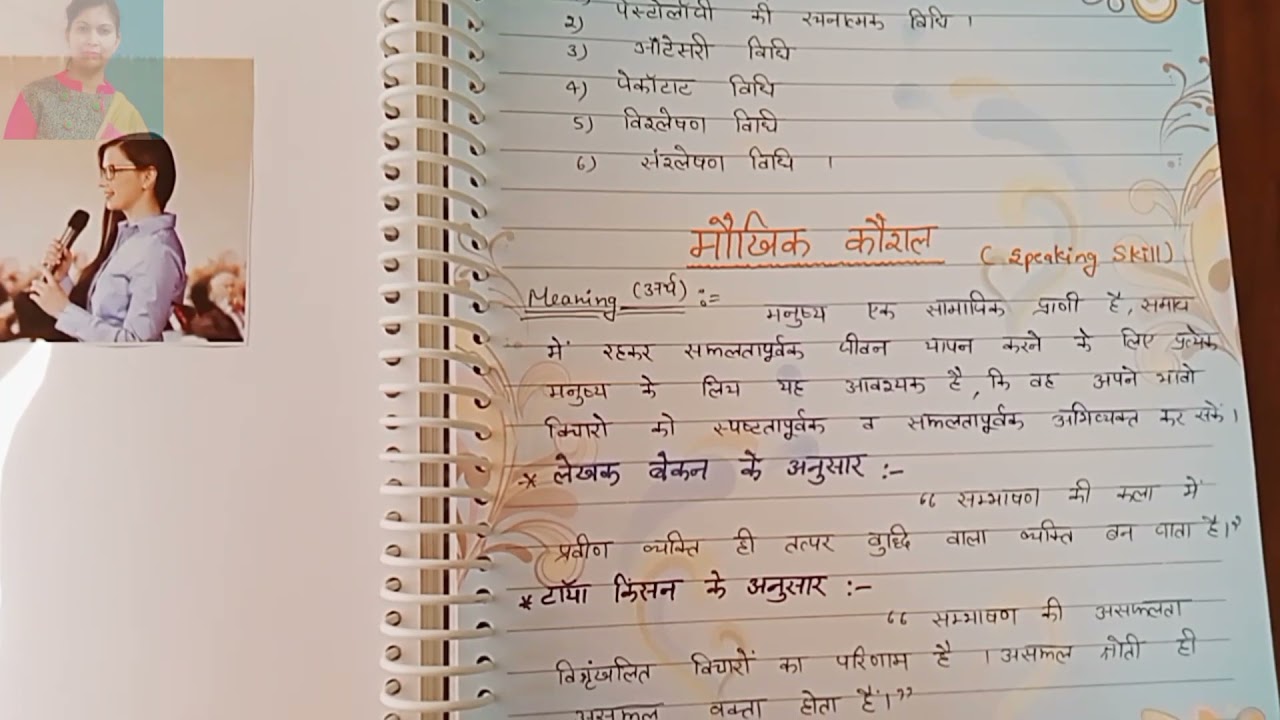 2) पेस्टोलॉची की रचनात्मक विधि ।
3) मॉटेसरी विधि
4) पेकॉटाट विधि
5) विश्लेषण विधि
6) संश्लेषण विधि ।
मौखिक कौशल ( Speaking Skill)
Meaning (अर्थ) :=
मनुष्य एक सामाजिक प्राणी है, समाज
में रहकर सफलतापूर्वक जीवन यापन करने के लिए प्रत्येक
मनुष्य के लिय यह आवश्यक है, कि वह अपने भावो
विचारो को स्पष्टतापूर्वक व सफलतापूर्वक अभिव्यक्त कर सकें।
* लेखक बेकन के अनुसार :-
“ सम्भाषण की कला में
प्रवीण व्यक्ति ही तत्पर बुद्धि वाला व्यक्ति बन जाता है।”
* टॉया किंसन के अनुसार :-
“ सम्भाषण की असफलता
विशृंखलित विचारों का परिणाम है । असफल श्रोती ही
असफल वक्ता होता है।”